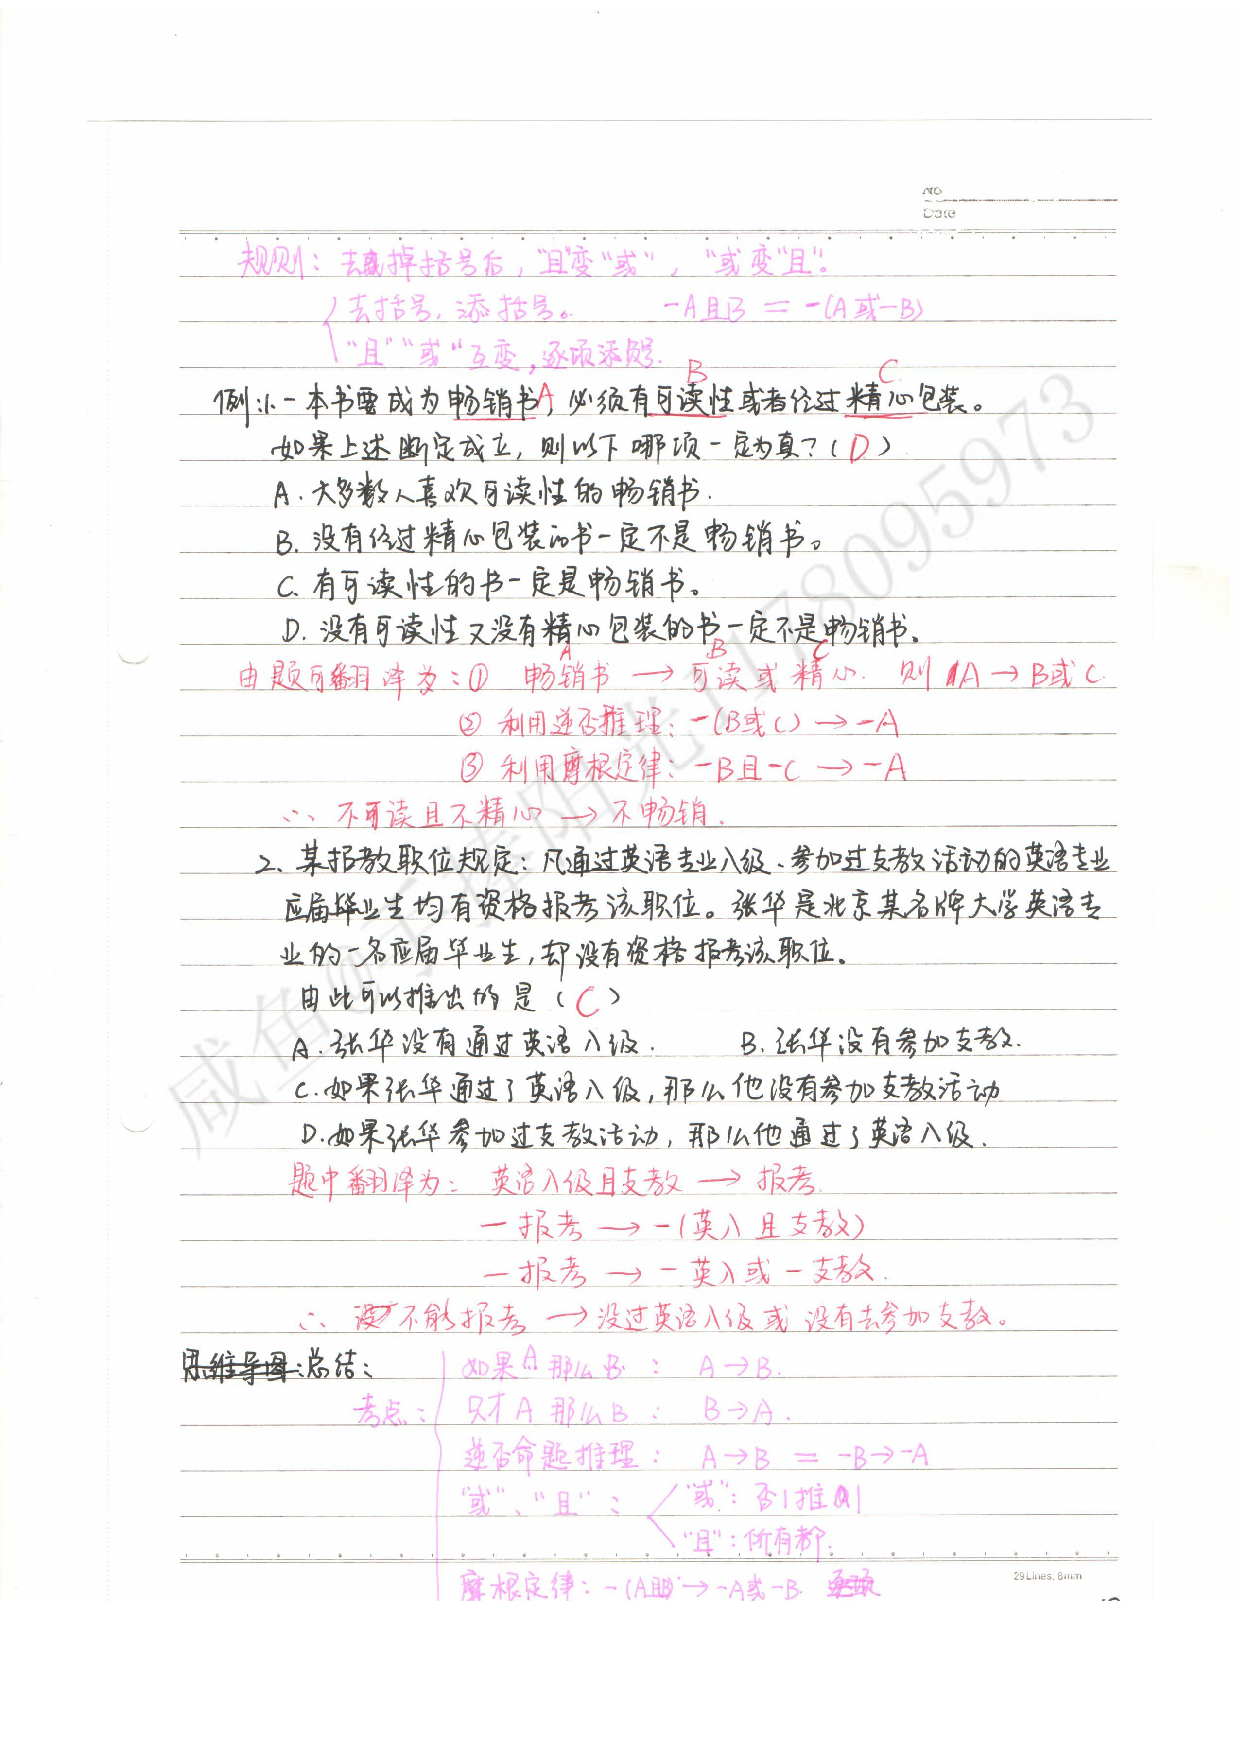 No
Date
规则：去掉括号后，"且"变"或"，"或变"且"。
去括号，添括号。 -A且B = -(A或-B)
"且""或"互变，逐项添负号.
B C
例:1.一本书要成为畅销书A，必须有可读性或者经过精心包装。
如果上述断定成立，则以下哪项一定为真？（D）
A.大多数人喜欢可读性的畅销书.
B.没有经过精心包装的书一定不是畅销书。
C.有可读性的书一定是畅销书。
D.没有可读性又没有精心包装的书一定不是畅销书。
A B C
由题可翻译为：① 畅销书 → 可读或精心. 则 A → B或C.
② 利用逆否推理：-(B或C) → -A
③ 利用摩根定律：-B且-C → -A
∴ 不可读且不精心 → 不畅销.
2、某招教职位规定：凡通过英语专业八级、参加过支教活动的英语专业
应届毕业生均有资格报考该职位。张华是北京某名牌大学英语专
业的一名应届毕业生，却没有资格报考该职位。
由此可以推出的是（C）
A.张华没有通过英语八级. B.张华没有参加支教.
C.如果张华通过了英语八级，那么他没有参加支教活动
D.如果张华参加过支教活动，那么他通过了英语八级.
题中翻译为：英语八级且支教 → 报考.
-报考 → -(英八且支教)
-报考 → -英八或-支教.
∴ 不能报考 → 没过英语八级或没有去参加支教。
思维导图:总结：
如果A那么B： A→B.
考点：
只才A那么B： B→A.
逆否命题推理： A→B = -B→-A
"或"、"且"：
"或"：否1推1
"且"：所有都.
摩根定律：-(A且B)→-A或-B.
29Lines, 8mm
咸鱼@手捧阳光J1178095973